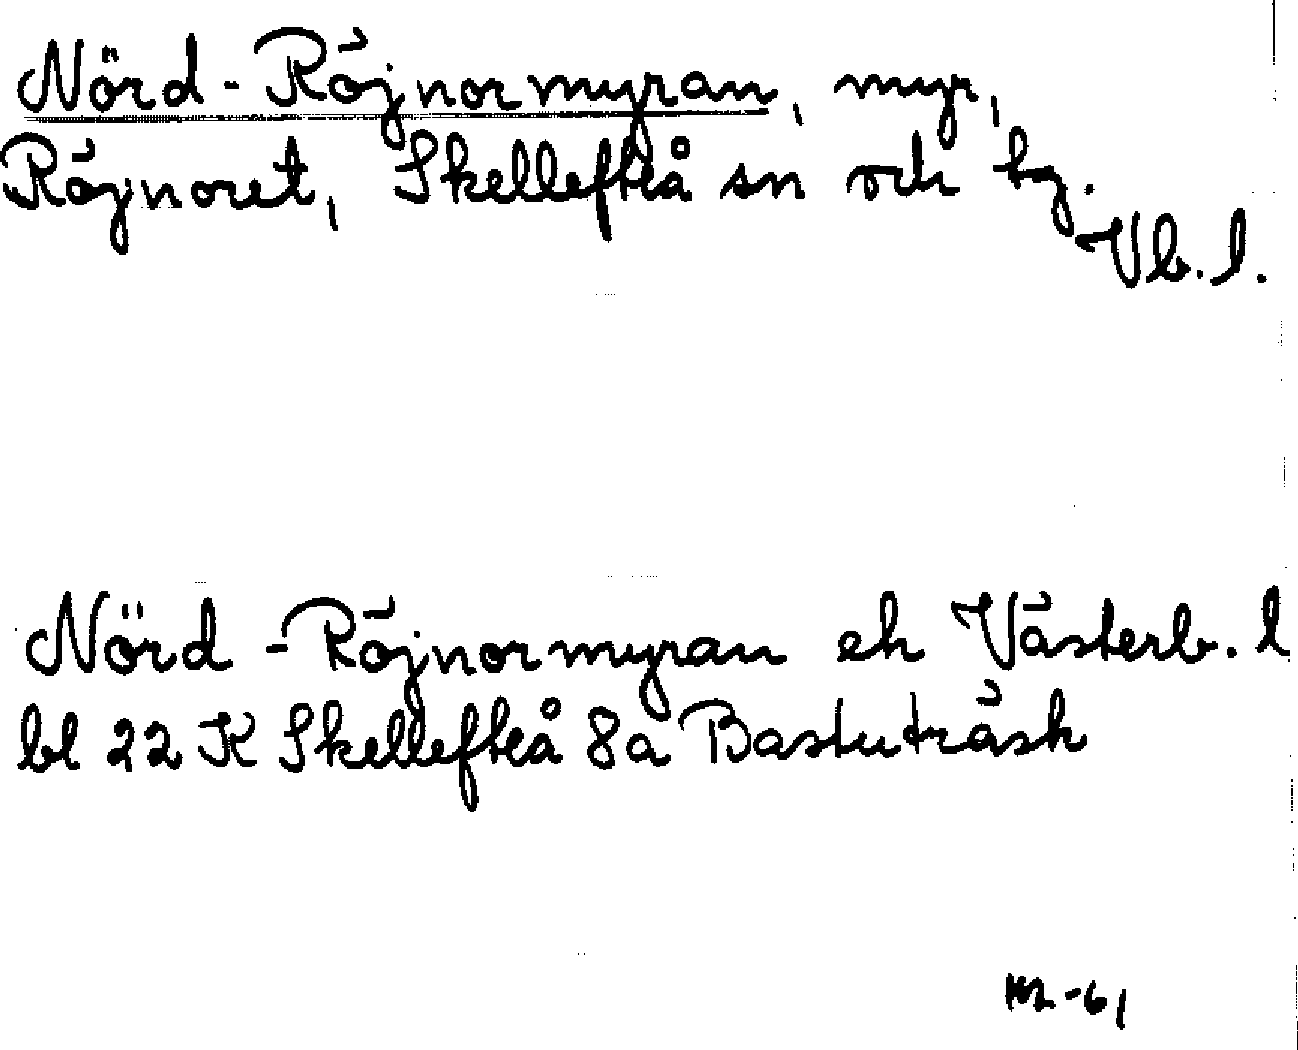 Nörd-Röjnormyran, myr,
Röjnoret, Skellefteå sn och tg.
Vb. l.
Nörd-Röjnormyran ek Västerb. l
bl 22 K Skellefteå 8a Bastuträsk